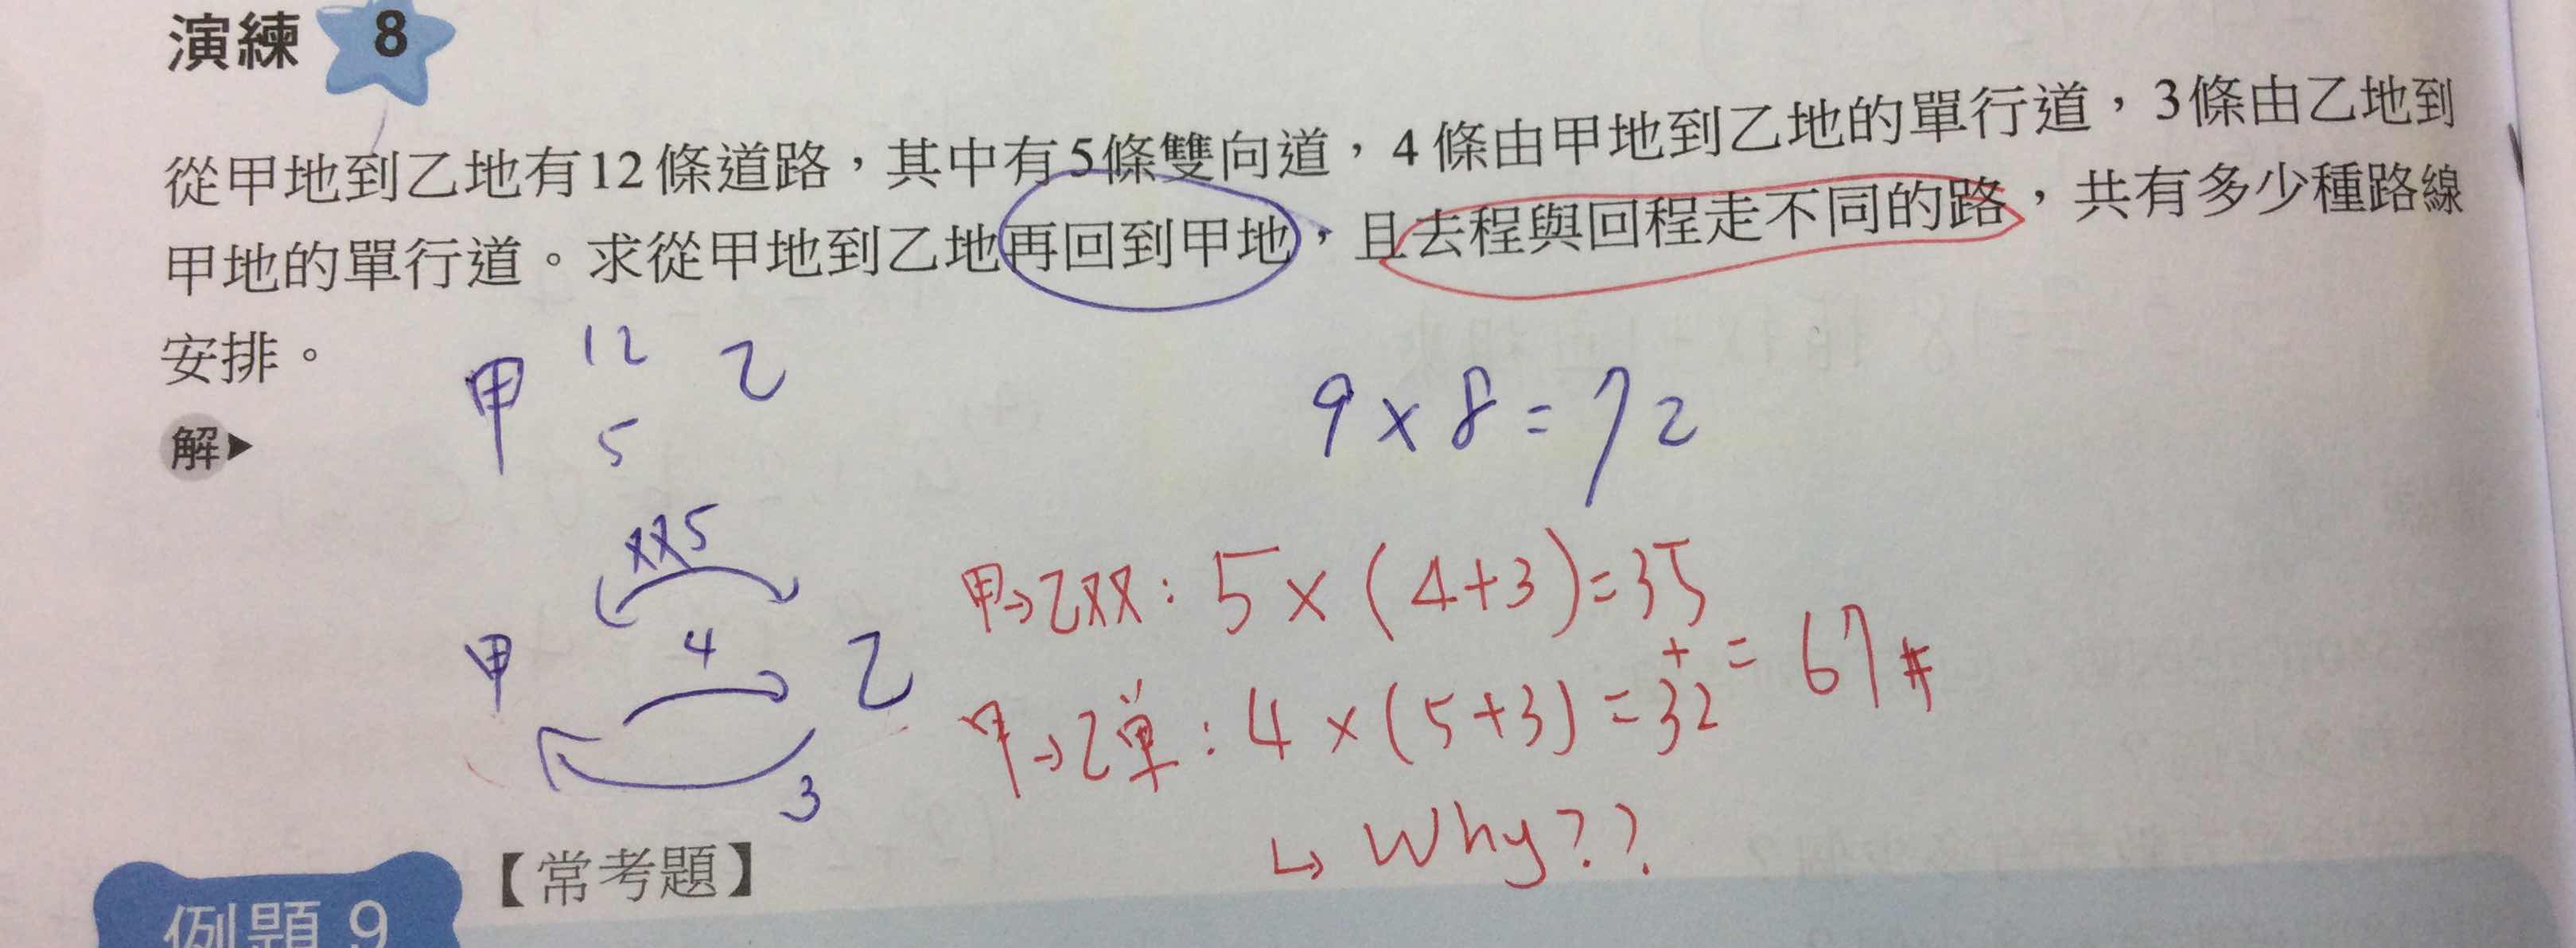 演練 8
從甲地到乙地有12條道路，其中有5條雙向道，4條由甲地到乙地的單行道，3條由乙地到
甲地的單行道。求從甲地到乙地再回到甲地，且去程與回程走不同的路，共有多少種路線
安排。
甲 12 乙
5
解▶
9×8=72
5
甲 4 乙
3
甲→乙双：5×(4+3)=35
+ = 67#
甲→乙单：4×(5+3)=32
↳ Why??
【常考題】
例題 9